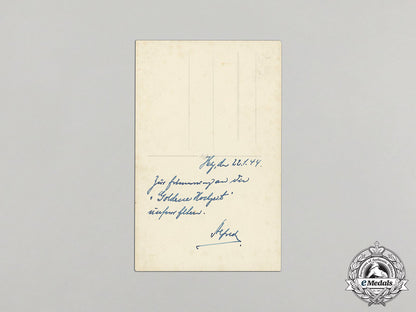 den 22.1.44.
Zur Erinnerung an die
"Goldene Hochzeit"
unserer Eltern.
Alfred
eMedals